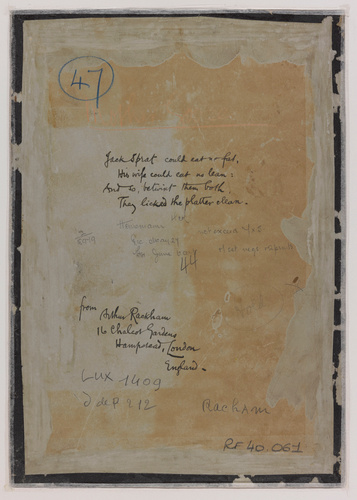 47
Jack Sprat could eat no fat,
His wife could eat no lean:
And so, betwixt them both,
They licked the platter clean.
44
from
Arthur Rackham
16 Chalcot Gardens
Hampstead, London
England.
LUX 1409
Rackham
RF 40 061